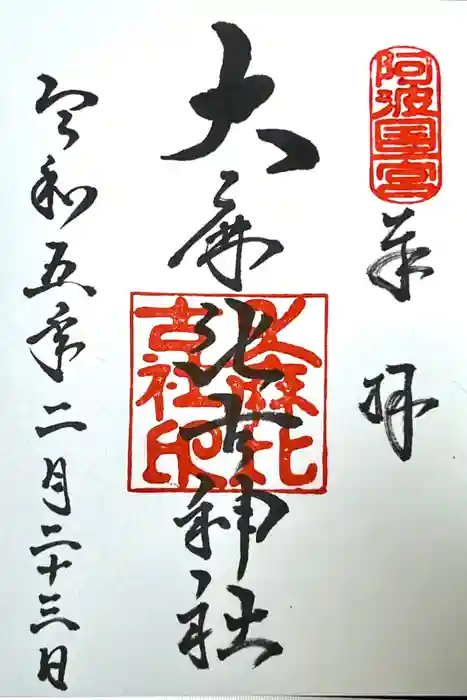 阿波国一宮
奉拝
大麻比古神社
大麻比
古社印
令和五年二月二十三日